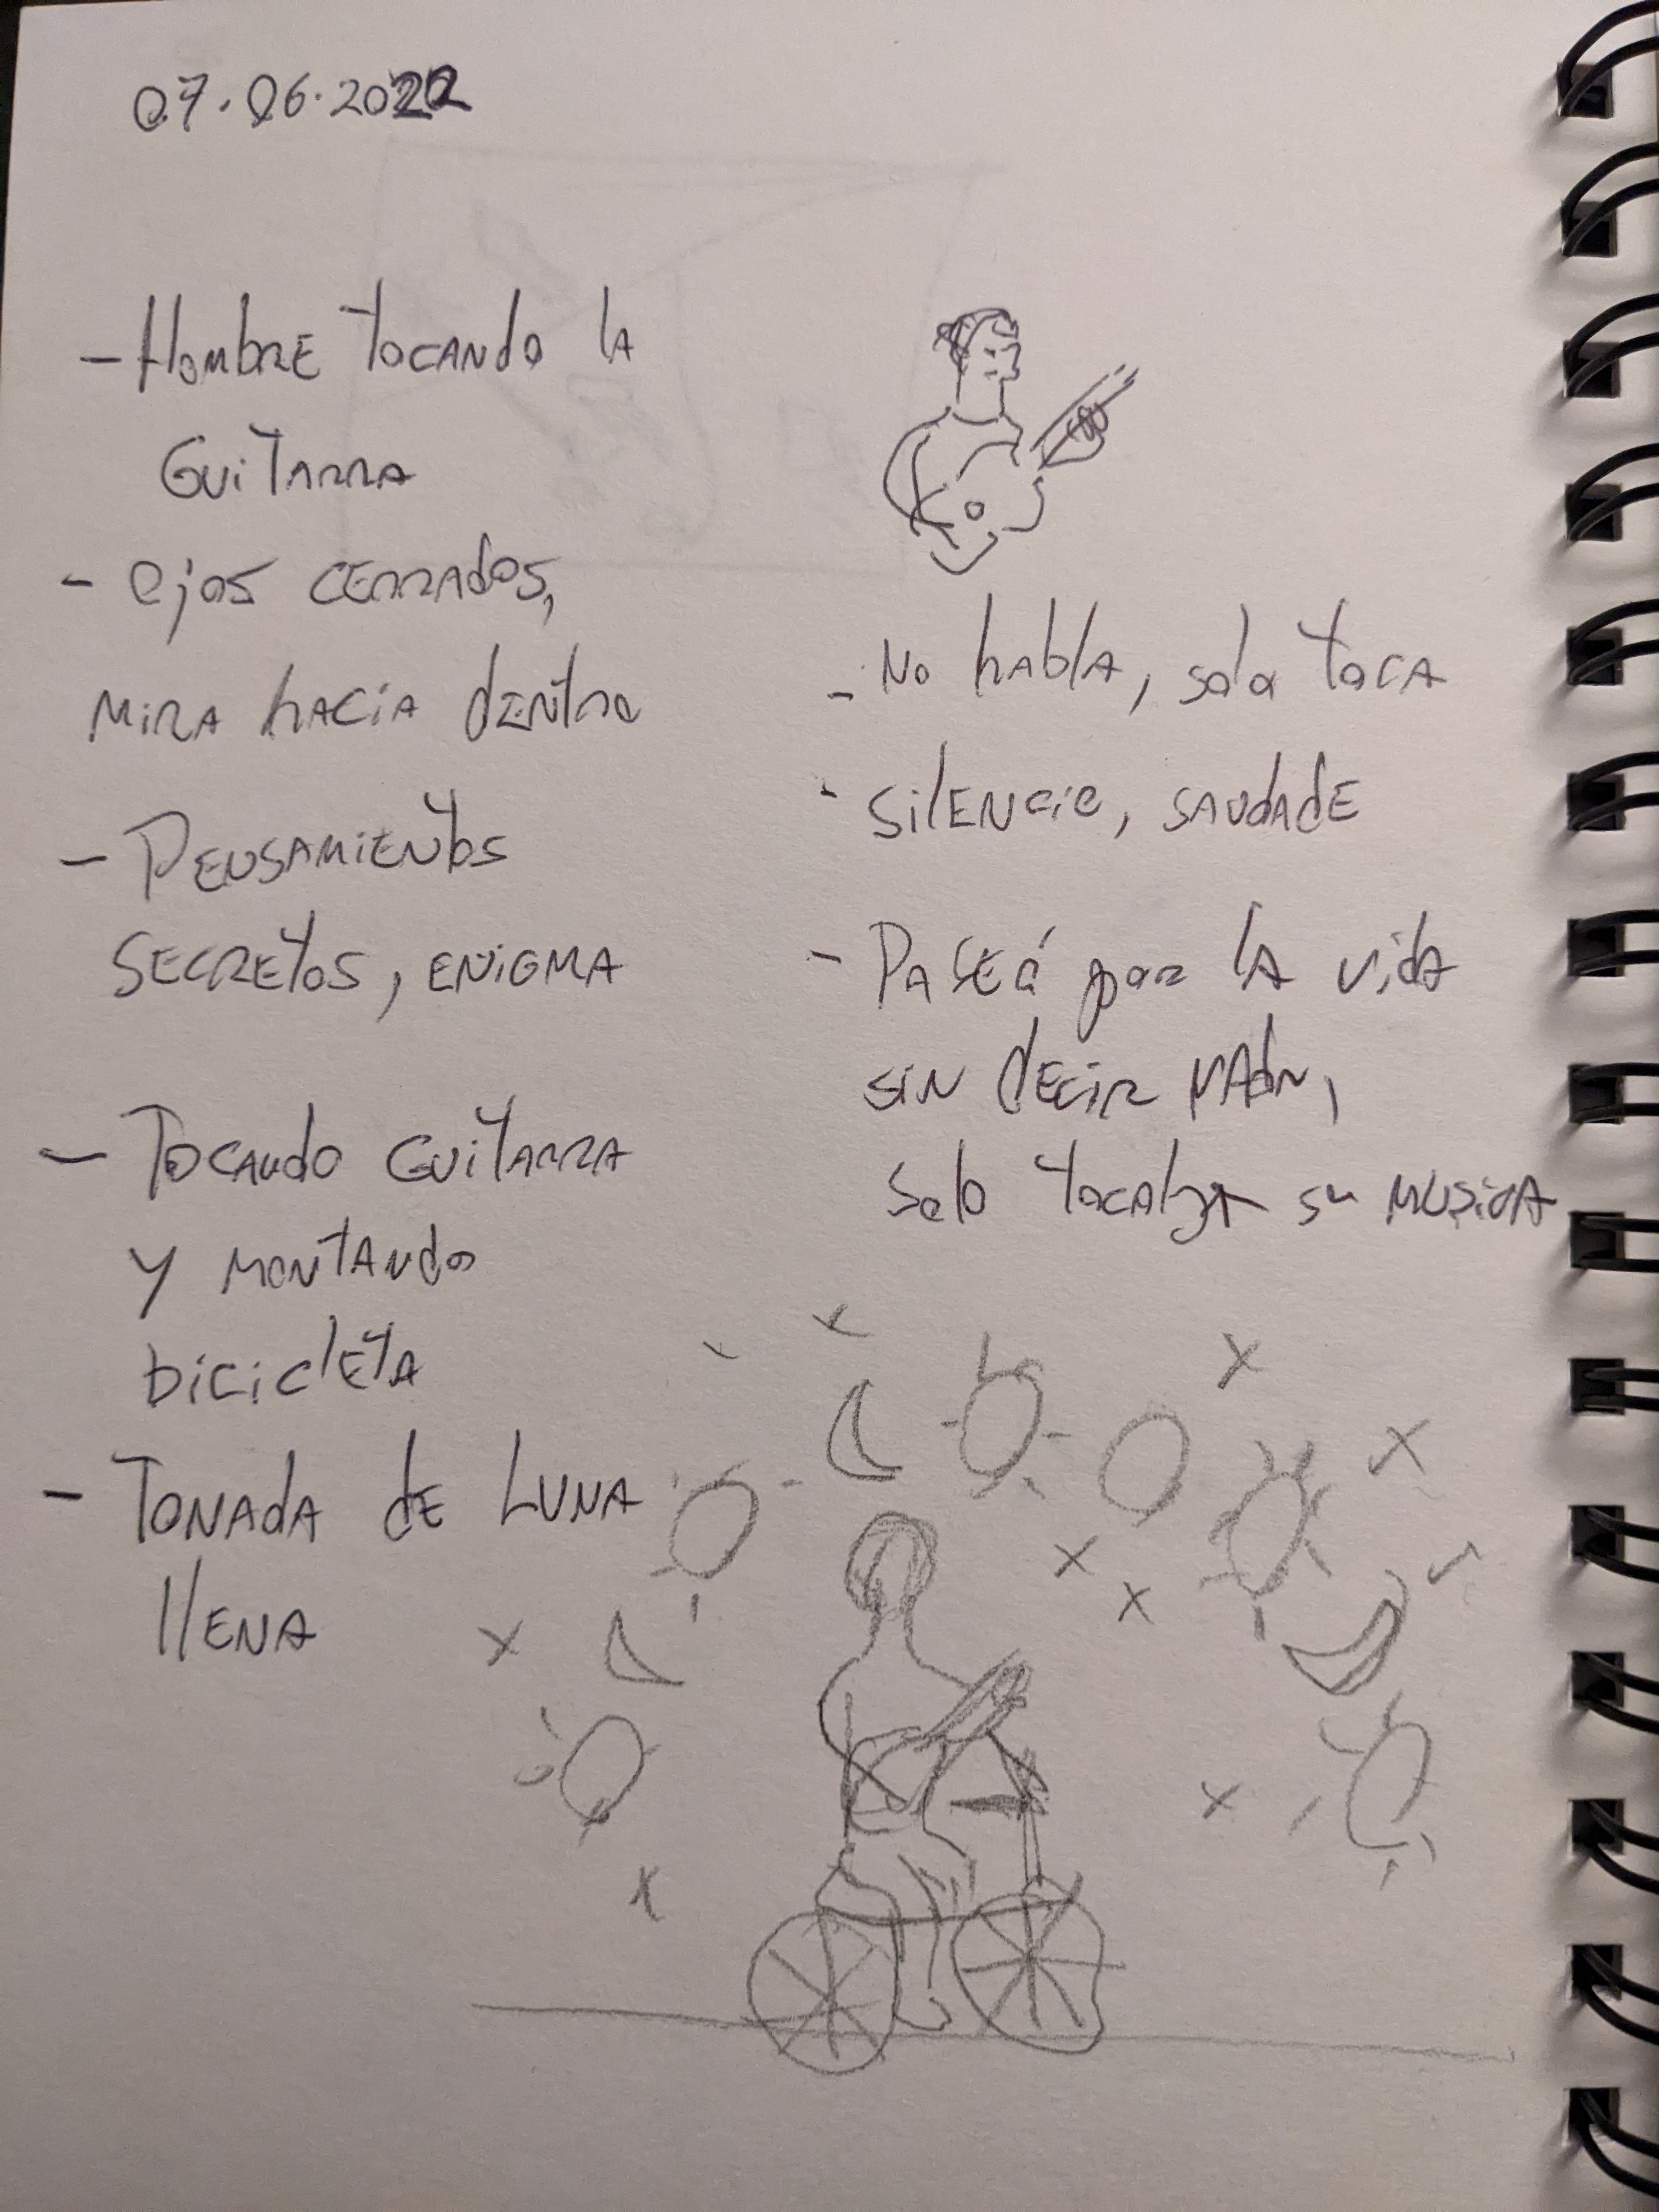 07.06.2022
- Hombre tocando la
Guitarra
- Ojos cerrados,
mira hacia dentro
- Pensamientos
secretos, enigma
- Tocando guitarra
y montando
bicicleta
- Tonada de Luna
llena
- No habla, solo toca
- Silencio, saudade
- Paseó por la vida
sin decir nada,
solo tocaba su musica